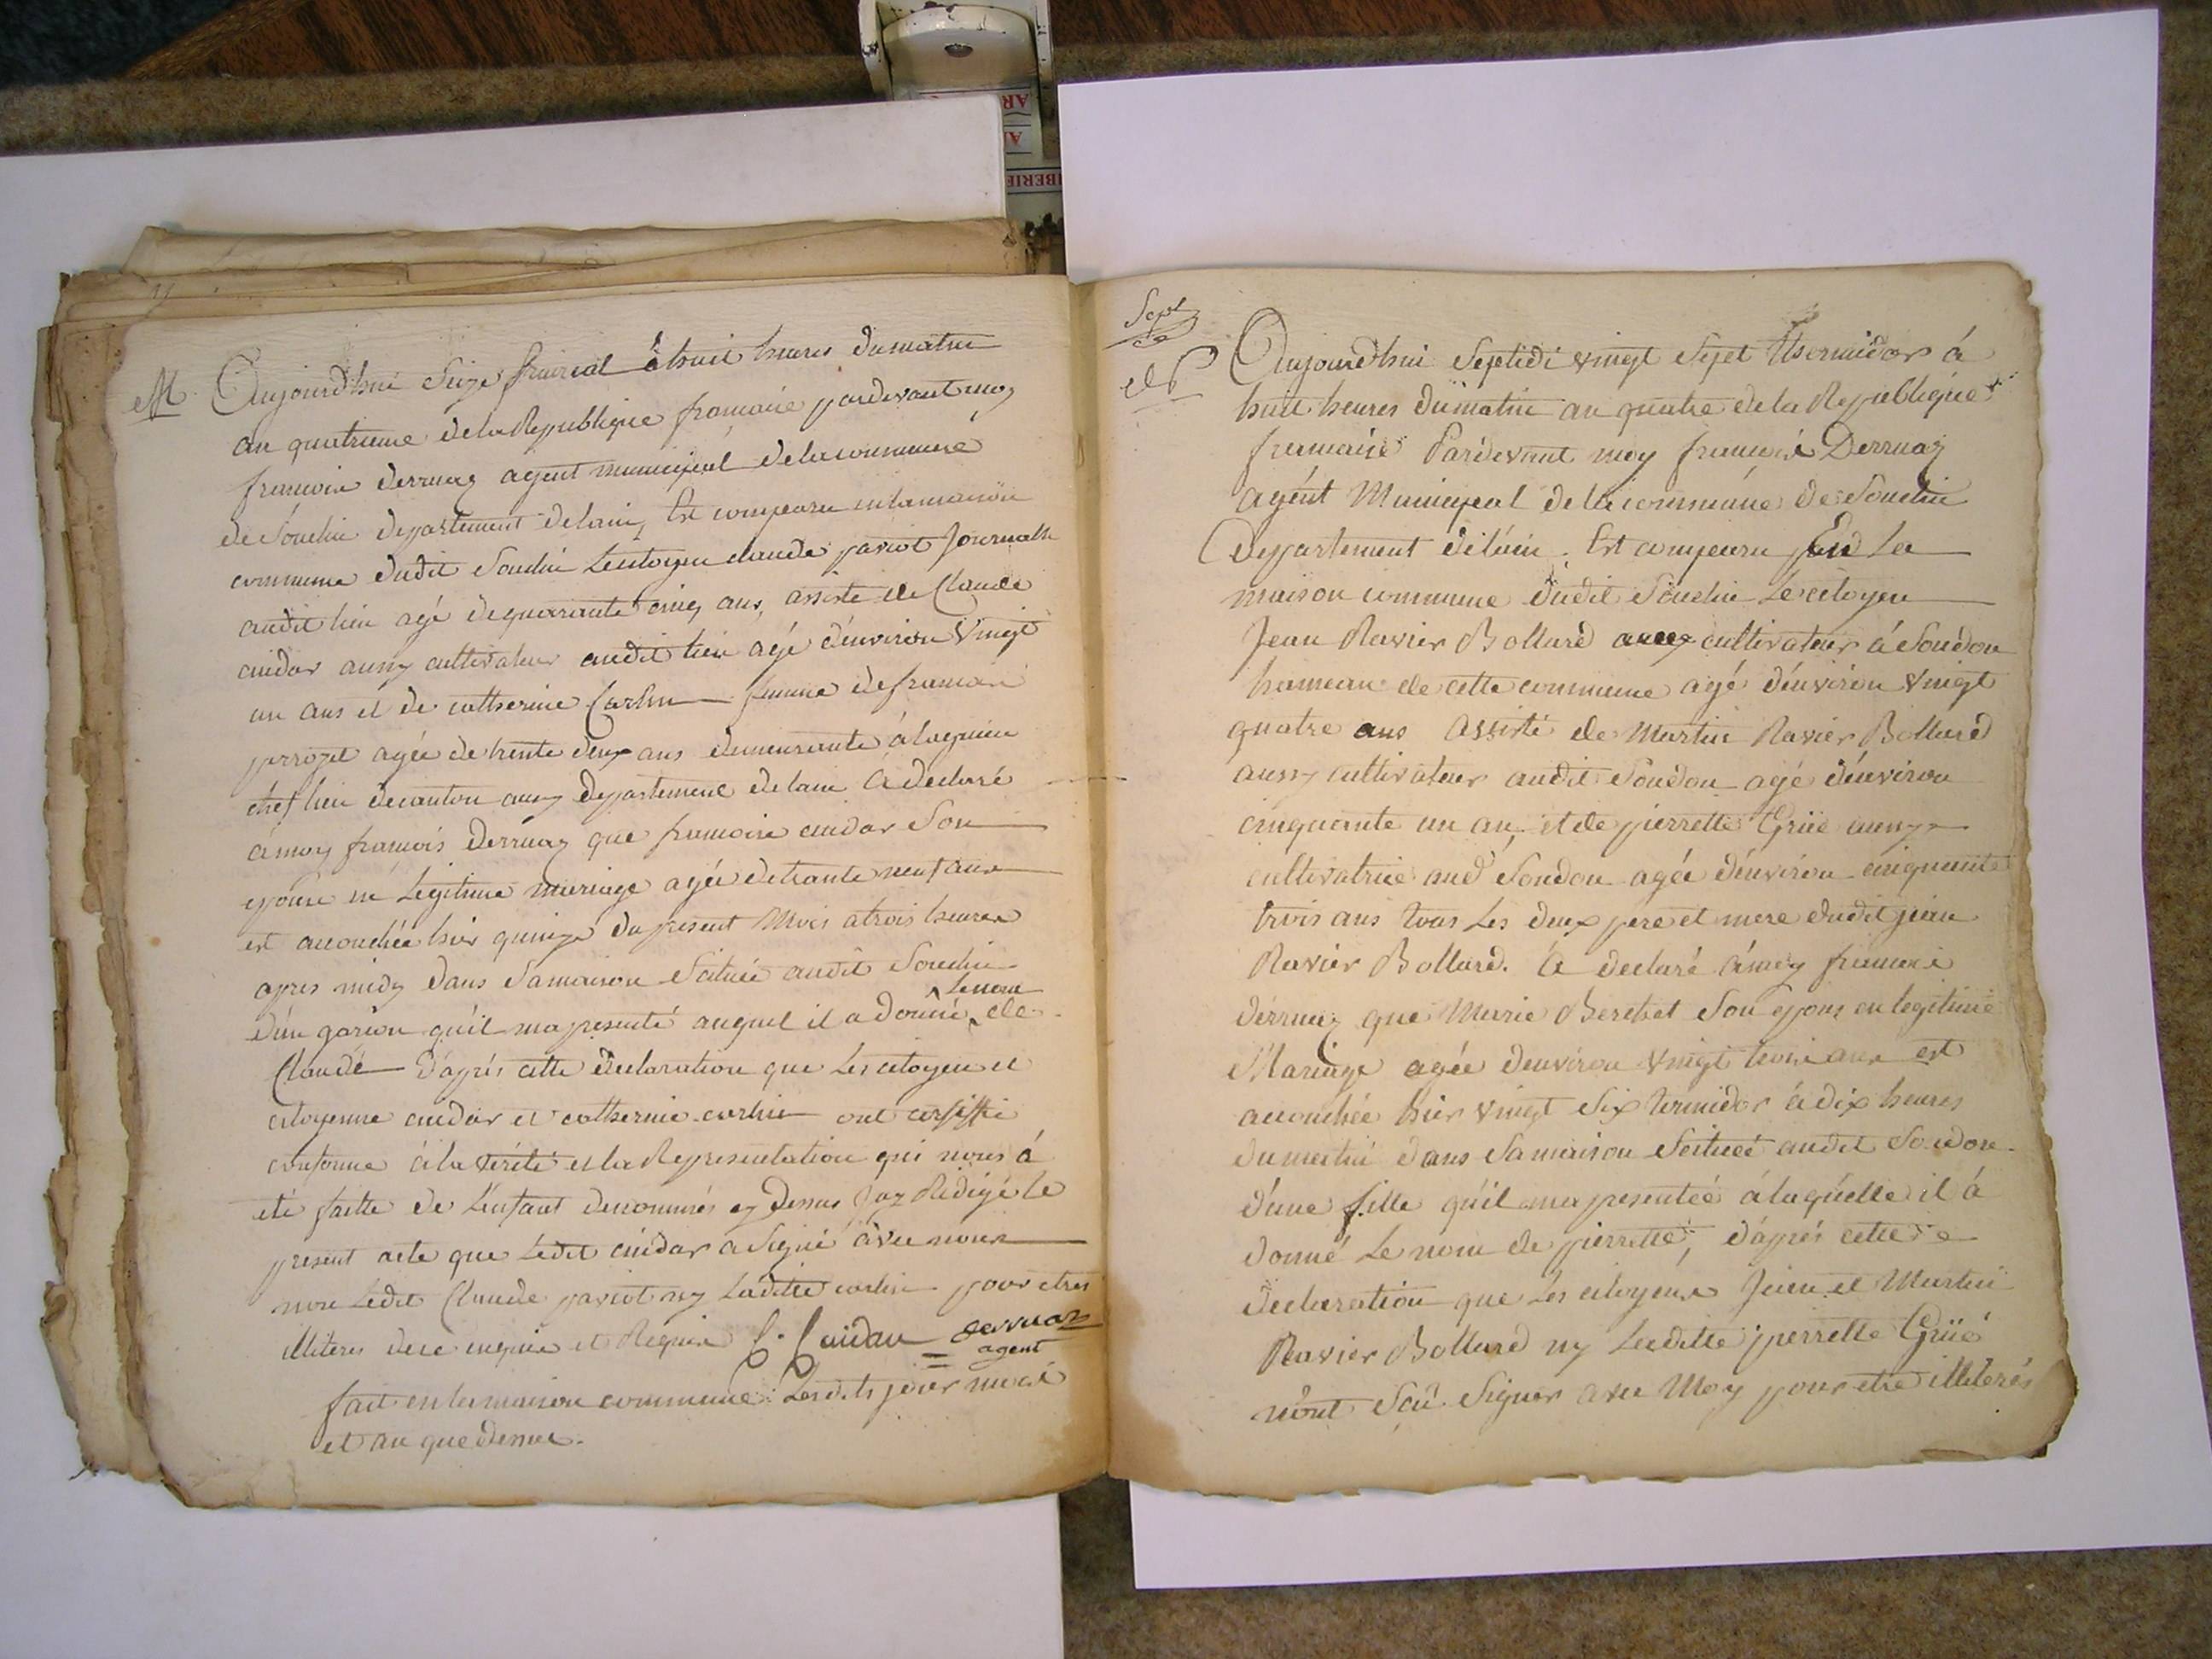 M
Aujourdhui Seize prairial à huit heures dumatin
an quatrieme delaRepublique francaise pardevant moy
francois derruaz agent municipal delacommune
de Souclin departement delain, Est comparu enlamaison
commune dudit Souclin Lecitoyen claude pariot Journalie
audit lieu agé dequarante cinq ans, assisté de Claude
cuidar aussy cultivateur audit lieu agé d'environ vingt
un ans et de catherine Carlin femme defrancois
perrozet agée detrente deux ans demeurante à lagnieu
chef lieu decanton aussy departement delain à declaré
àmoy françois derruaz que francoise cuidar Son
epouse en Legitime mariage agée detrante neuf ans
est accouchée hier quinze du present Mois atrois heures
apres midy dans Samaison Scituée audit Souclin
d'un garson qu'il ma presenté auquel il a donné Lenom de
Claude d'aprés cette declaration que Les citoyen et
citoyenne cuidar et catherine carlin ont
conforme àla vérité et la Representation qui nous à
été faitte de L'enfant denommés cy dessus Jay Rédigé le
present acte que Ledit cuidar a Signé avec nous
non Ledit Claude pariot ny Laditte carlin pour etres
illiteres dece enquis et Requis C. Cuidar derruaz
agent
fait en lamaison commune Lesdits jour mois
et an que dessus.
Sept
Aujourdhui Septidi vingt Sept thermidor à
huit heures dumatin an quatre dela Republique
francaise Pardevant moy francois Derruaz
agént Municipal de la commune de Souclin
Departement delain. Est comparu En La
maison commune dudit Souclin Le citoyen
Jean Ravier Bollard cultivateur à Soudon
hameau de cette commune agé d'environ vingt
quatre ans assisté de Martin Ravier Bollard
aussy cultivateur audit Soudon agé d'environ
cinquante un an, et de pierrette Grüé aussy
cultivatrice aud Soudon agée d'environ cinquante
trois ans tous Les deux pere et mere dudit jean
Ravier Bollard. à declaré àmoy francois
dérruaz que Marie Berchet Son epous en legitime
Mariage agée denviron vingt trois ans est
accouchée hier vingt Six termidor à dix heures
dumatin dans Samaison Scituée audit Soudon
d'une fille qu'il ma presentée à laquelle il à
donné Le nom de pierrette, d'aprés cette
declaration que Lés citoyens Jean et Martin
Ravier Bollard ny Laditte pierrette Grüé
n'ont Scu Signer avec Moy pour etre illiterés